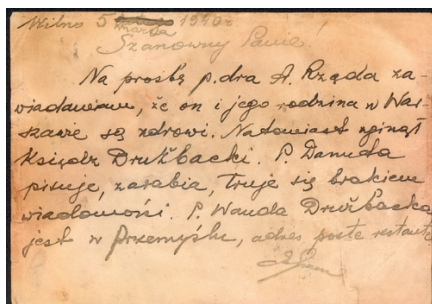 Wilno 5 marca 1940 r
Szanowny Panie!
Na prośbę p. dra A. Rząda za-
wiadamiam, że on i jego rodzina w War-
szawie są zdrowi. Natomiast zginął
Ksiądz Drużbacki. P. Danuta
pisuje, zarabia, truje się brakiem
wiadomości. P. Wanda Drużbacka
jest w Przemyślu, adres poste restante